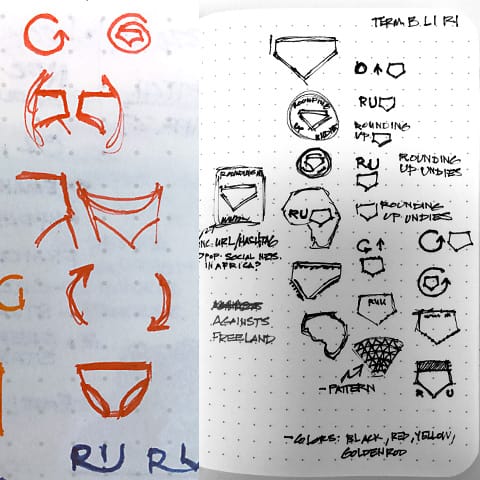 TERM. B. L I R I
ROUNDING
UP
UNDIES
RU
ROUNDING
UP
RU
ROUNDING
UP UNDIES
ROUNDING
RU
ROUNDING
UP UNDIES
INC. URL/HASHTAG
POP. SOCIAL NETS.
IN AFRICA?
AGAINSTS
FREELAND
RUU
R U
-PATTERN
-COLORS: BLACK, RED, YELLOW,
GOLDENROD
RU RU